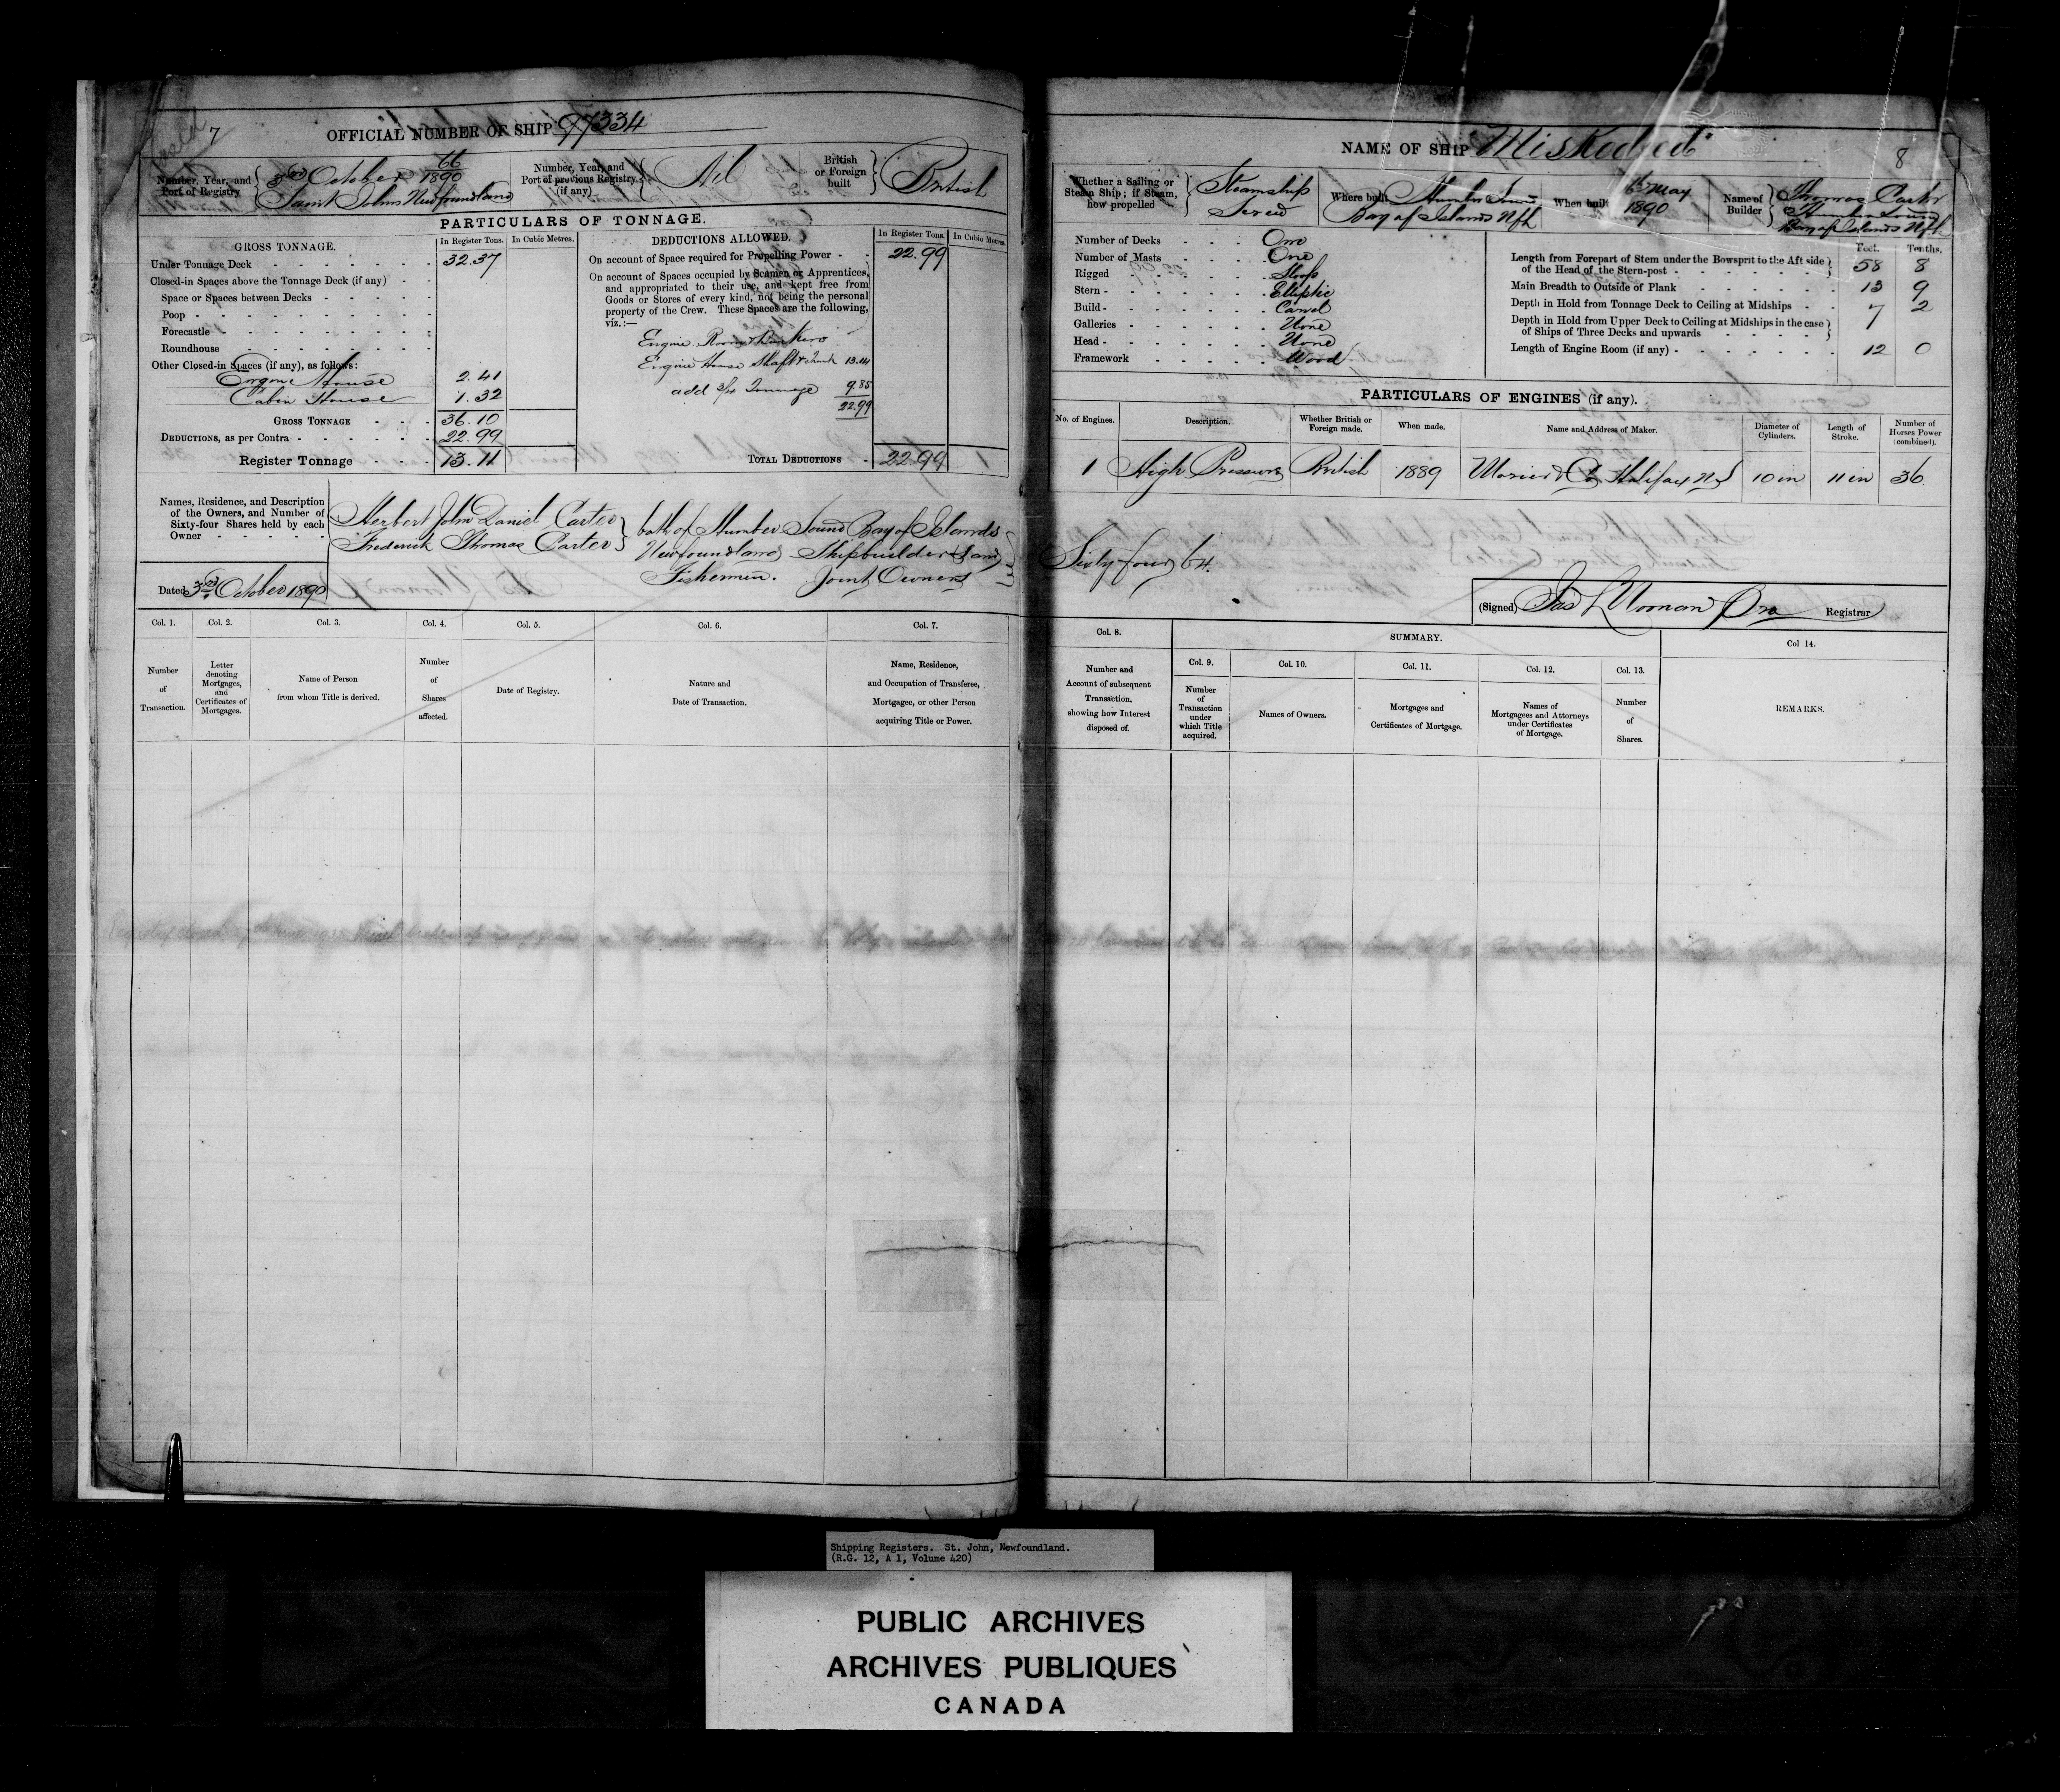 7
OFFICIAL NUMBER OF SHIP 97334
Number, Year, and Port of Registry
66
3rd October 1890
Saint Johns Newfoundland
Number, Year, and Port of previous Registry (if any)
Nil
British or Foreign built
British
PARTICULARS OF TONNAGE.
GROSS TONNAGE.
In Register Tons.
In Cubic Metres.
Under Tonnage Deck 32.37
Closed-in Spaces above the Tonnage Deck (if any)
Space or Spaces between Decks
Poop
Forecastle
Roundhouse
Other Closed-in Spaces (if any), as follows:
Engine House 2.41
Cabin House 1.32
GROSS TONNAGE 36.10
DEDUCTIONS, as per Contra 22.99
Register Tonnage 13.11
DEDUCTIONS ALLOWED.
In Register Tons.
In Cubic Metres.
On account of Space required for Propelling Power 22.99
On account of Spaces occupied by Seamen or Apprentices,
and appropriated to their use, and kept free from
Goods or Stores of every kind, not being the personal
property of the Crew. These Spaces are the following,
viz.:—
Engine Room & Bunkers
Engine House Shaft & trunk 13.14
add 3/4 Tonnage 9.85
22.99
TOTAL DEDUCTIONS 22.99
Names, Residence, and Description
of the Owners, and Number of
Sixty-four Shares held by each
Owner
Herbert John Daniel Carter
Frederick Thomas Carter
both of Humber Sound Bay of Islands
Newfoundland Shipbuilders and
Fishermen. Joint Owners
Dated 3rd October 1890
Col. 1.
Number of Transaction.
Col. 2.
Letter denoting Mortgages, and Certificates of Mortgages.
Col. 3.
Name of Person from whom Title is derived.
Col. 4.
Number of Shares affected.
Col. 5.
Date of Registry.
Col. 6.
Nature and Date of Transaction.
Col. 7.
Name, Residence, and Occupation of Transferee, Mortgagee, or other Person acquiring Title or Power.
NAME OF SHIP "Miskodeed"
8
Whether a Sailing or Steam Ship; if Steam, how propelled
Steamship
Screw
Where built
Humber Sound
Bay of Islands Nfld
When built
6th May
1890
Name of Builder
Thomas Carter
Humber Sound
Bay of Islands Nfld
Number of Decks One
Number of Masts One
Rigged Sloop
Stern Elliptic
Build Carvel
Galleries None
Head None
Framework Wood
Feet. Tenths.
Length from Forepart of Stem under the Bowsprit to the Aft side
of the Head of the Stern-post 58 8
Main Breadth to Outside of Plank 13 9
Depth in Hold from Tonnage Deck to Ceiling at Midships 7 2
Depth in Hold from Upper Deck to Ceiling at Midships in the case
of Ships of Three Decks and upwards
Length of Engine Room (if any) 12 0
PARTICULARS OF ENGINES (if any).
No. of Engines.
Description.
Whether British or Foreign made.
When made.
Name and Address of Maker.
Diameter of Cylinders.
Length of Stroke.
Number of Horses Power (combined).
1 High Pressure British 1889 & Co Halifax NS 10 in 11 in 36
Sixty four 64.
(Signed) Jas L Noonan Registrar
Col. 8.
Number and Account of subsequent Transaction, showing how Interest disposed of.
SUMMARY.
Col. 9.
Number of Transaction under which Title acquired.
Col. 10.
Names of Owners.
Col. 11.
Mortgages and Certificates of Mortgage.
Col. 12.
Names of Mortgagees and Attorneys under Certificates of Mortgage.
Col. 13.
Number of Shares.
Col 14.
REMARKS.
Shipping Registers. St. John, Newfoundland.
(R.G. 12, A 1, Volume 420)
PUBLIC ARCHIVES
ARCHIVES PUBLIQUES
CANADA